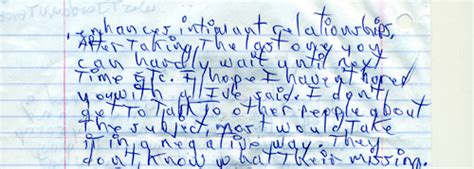 enhances intimant relationships,
After Taking The last one you
can hardly wait until next
Time etc. I hope I havent bored
you with all I've said. I don't
get To Talk To other people about
The subject, most would Take
it in a negative way. They
don't, know what Their missing.